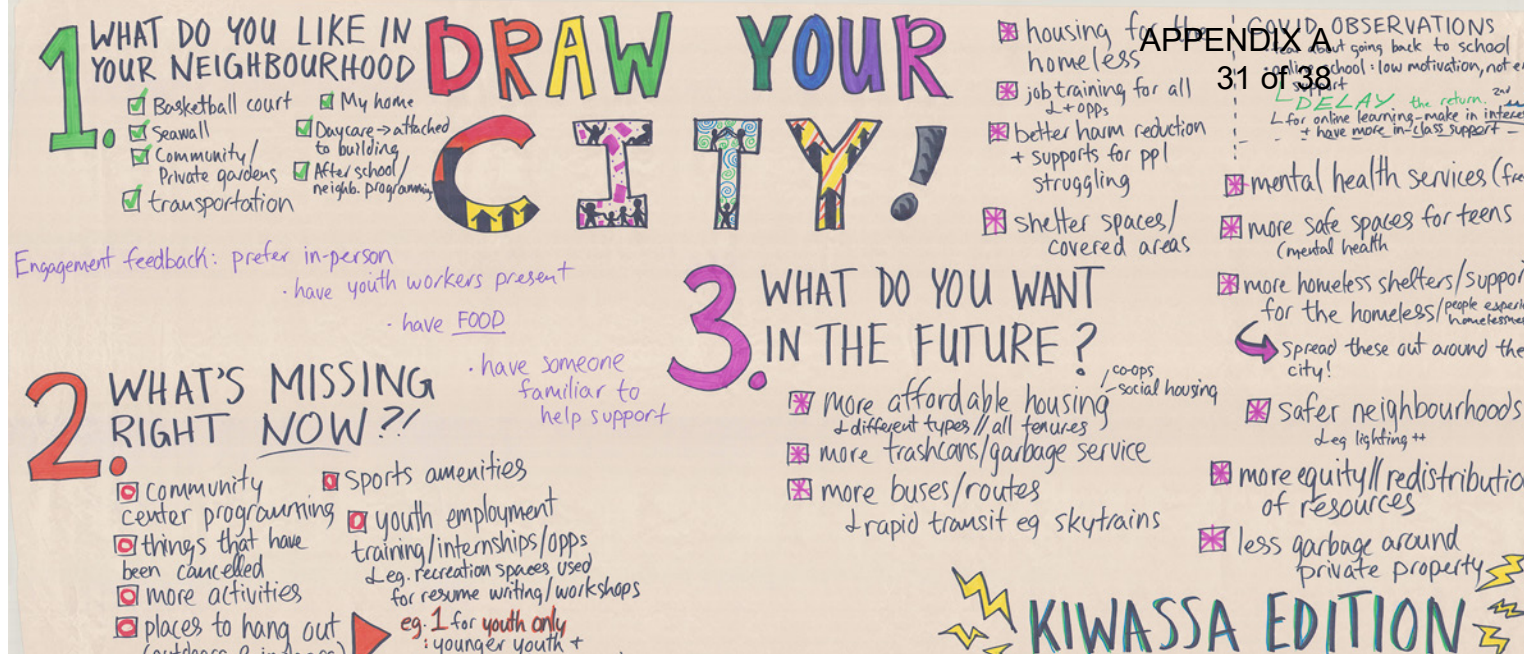 DRAW YOUR
CITY!
APPENDIX A
31 of 38
1. WHAT DO YOU LIKE IN
YOUR NEIGHBOURHOOD
Basketball court
Seawall
Community/
Private gardens
transportation
My home
Daycare → attached
to building
After school/
neighb. programming
Engagement feedback: prefer in-person
· have youth workers present
· have FOOD
· have someone
familiar to
help support
2. WHAT'S MISSING
RIGHT NOW?!
community
center programming
things that have
been cancelled
more activities
places to hang out
(outdoors & indoors)
sports amenities
youth employment
training/internships/opps
eg. recreation spaces used
for resume writing/workshops
eg. 1 for youth only
: younger youth +
3. WHAT DO YOU WANT
IN THE FUTURE?
more affordable housing
co-ops
social housing
different types // all tenures
more trashcans/garbage service
more buses/routes
rapid transit eg skytrains
housing for the
homeless
job training for all
+ opps
better harm reduction
+ supports for ppl
struggling
shelter spaces/
covered areas
COVID OBSERVATIONS
about going back to school
· online school : low motivation, not
support
DELAY the return. 2nd
for online learning - make in
+ have more in-class support -
mental health services
more safe spaces for teens
(mental health
more homeless shelters/
for the homeless/people
Spread these out around the
city!
safer neighbourhoods
eg lighting ++
more equity//
of resources
less garbage around
private property
KIWASSA EDITION